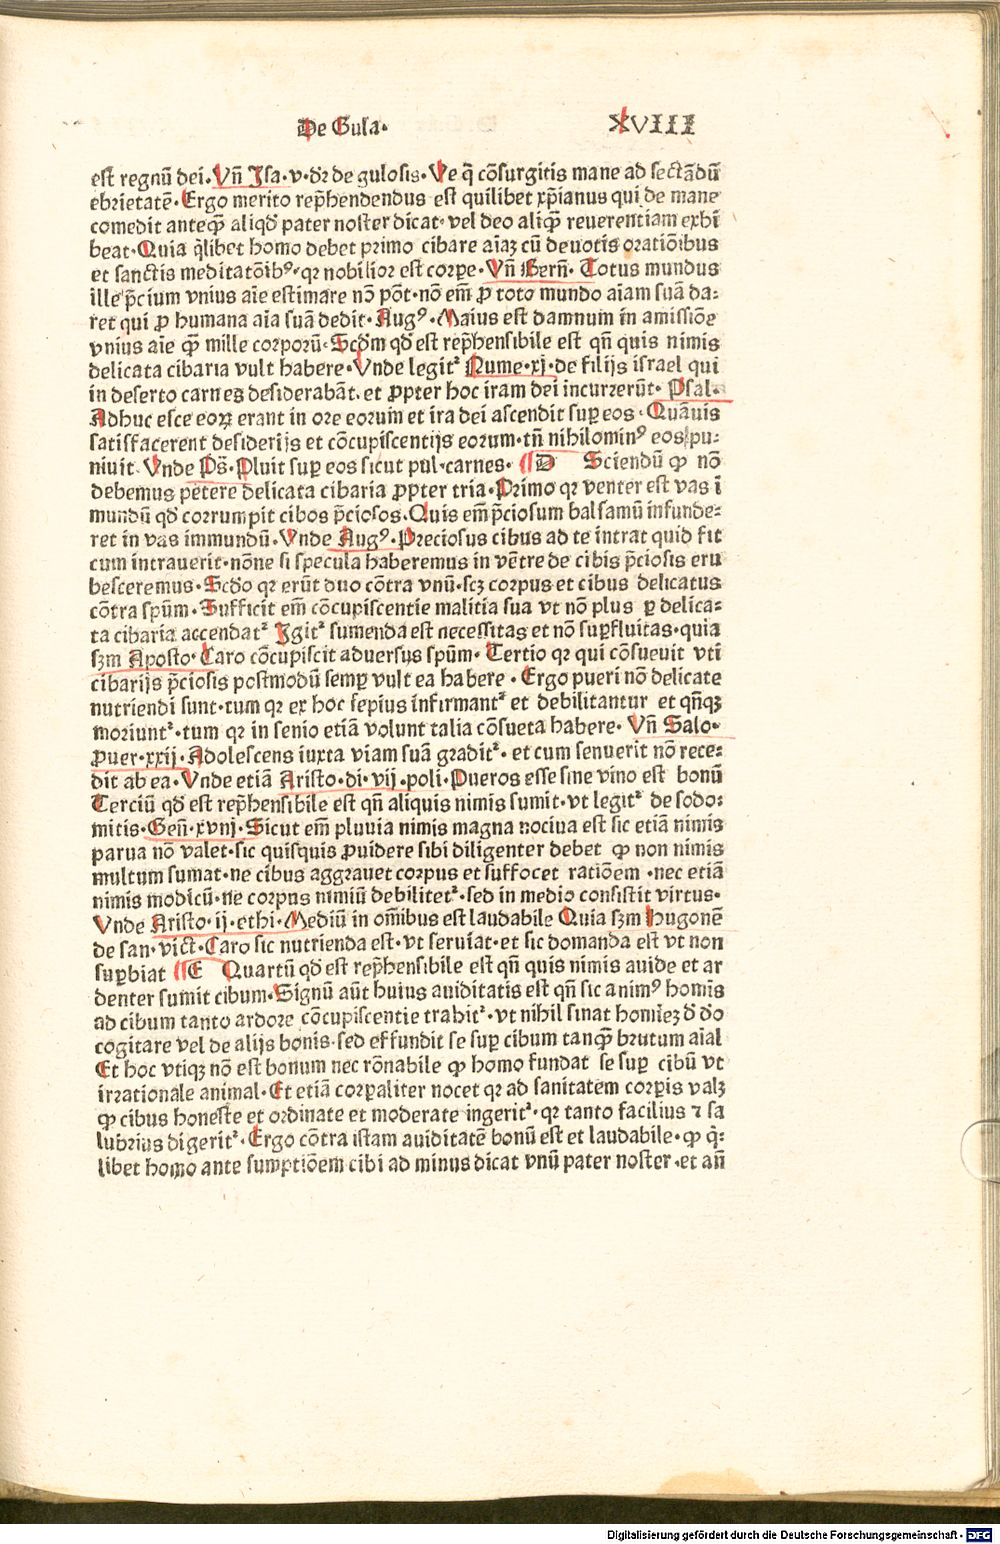 De Gula·
XVIII
est regnū dei·Vñ Jsa·v·dꝛ de gulosis·Ve q̄ cōsurgitis mane ad sectādū
ebrietatē·Ergo merito rep̄hendendus est quilibet xp̄ianus qui de mane
comedit anteqꝫ̄ aliqd̄ pater noster dicat·vel deo aliqꝫ̄ reuerentiam exhi
beat·Quia q̄libet homo debet primo cibare aīaꝫ cū deuotis orationibus
et sanctis meditatōibꝰ·qꝛ nobilior est corpe·Vñ Bern̄·Totus mundus
ille p̄cium vnius aīe estimare nō pōt·nō em̄ ꝓ toto mundo aīam suā da⸗
ret qui ꝓ humana aīa suā dedit·Augꝰ·Maius est damnum in amissiōe
vnius aīe qꝫ̄ mille corporū·Scd̄m qd̄ est rep̄hensibile est qn̄ quis nimis
delicata cibaria vult habere·Vnde legitᷣ Nume·xj·de filijs israel qui
in deserto carnes desiderabāt·et ꝓpter hoc iram dei incurrerūt·Psal·
Adhuc esce eoꝝ erant in ore eorum et ira dei ascendit suꝑ eos·Quāuis
satisfacerent desiderijs et cōcupiscentijs eorum·tn̄ nihilominꝰ eos pu⸗
niuit·Vnde Ps̄·Pluit suꝑ eos sicut pul·carnes·¶D Sciendū ꝙ nō
debemus petere delicata cibaria ꝓpter tria·Primo qꝛ venter est vas ī
mundū qd̄ corrumpit cibos p̄ciosos·Quis em̄ p̄ciosum balsamū infunde⸗
ret in vas immundū·Vnde Augꝰ·Preciosus cibus ad te intrat quid fit
cum intrauerit·nōne si specula haberemus in vētre de cibis p̄ciosis eru
besceremus·Scd̄o qꝛ erūt duo cōtra vnū·scꝫ corpus et cibus delicatus
cōtra spūm·Sufficit em̄ cōcupiscentie malitia sua vt nō plus ꝑ delica⸗
ta cibaria accendatᷣ Jgitᷣ sumenda est necessitas et nō suꝑfluitas·quia
sꝫm Aposto·Caro cōcupiscit aduersus spūm·Tertio qꝛ qui cōsueuit vti
cibarijs p̄ciosis postmodū semꝑ vult ea habere·Ergo pueri nō delicate
nutriendi sunt·tum qꝛ ex hoc sepius infirmantᷣ et debilitantur et qn̄qꝫ
moriuntᷣ·tum qꝛ in senio etiā volunt talia cōsueta habere·Vñ Salo·
ꝓuer·xxij·Adolescens iuxta viam suā graditᷣ·et cum senuerit nō rece⸗
dit ab ea·Vnde etiā Aristo·di·vij·poli·Pueros esse sine vino est bonū
Terciū qd̄ est rep̄hensibile est qn̄ aliquis nimis sumit·vt legitᷣ de sodo⸗
mitis·Gen̄·xviij·Sicut em̄ pluuia nimis magna nociua est sic etiā nimis
parua nō valet·sic quisquis ꝓuidere sibi diligenter debet ꝙ non nimis
multum sumat·ne cibus aggrauet corpus et suffocet ratiōem·nec etiā
nimis modicū·ne corpus nimiū debilitetᷣ·sed in medio consistit virtus·
Vnde Aristo·ij·ethi·Mediū in om̄ibus est laudabile Quia sꝫm Hugonē
de san·vict·Caro sic nutrienda est·vt seruiat·et sic domanda est vt non
suꝑbiat ¶E Quartū qd̄ est rep̄hensibile est qn̄ quis nimis auide et ar
denter sumit cibum·Signū aūt huius auiditatis est qn̄ sic animꝰ homīs
ad cibum tanto ardore cōcupiscentie trahitᷣ·vt nihil sinat hominez d̄ d̄o
cogitare vel de alijs bonis·sed effundit se suꝑ cibum tanqꝫ̄ brutum aīal
Et hoc vtiqꝫ nō est bonum nec rōnabile ꝙ homo fundat se suꝑ cibū vt
irrationale animal·Et etiā corꝑaliter nocet qꝛ ad sanitatem corꝑis valꝫ
ꝙ cibus honeste et ordinate et moderate ingeritᷣ·qꝛ tanto facilius ⁊ sa
lubrius digeritᷣ·Ergo cōtra istam auiditatē bonū est et laudabile·ꝙ q̄⸗
libet homo ante sumptiōem cibi ad minus dicat vnū pater noster·et an̄
Digitalisierung gefördert durch die Deutsche Forschungsgemeinschaft - DFG